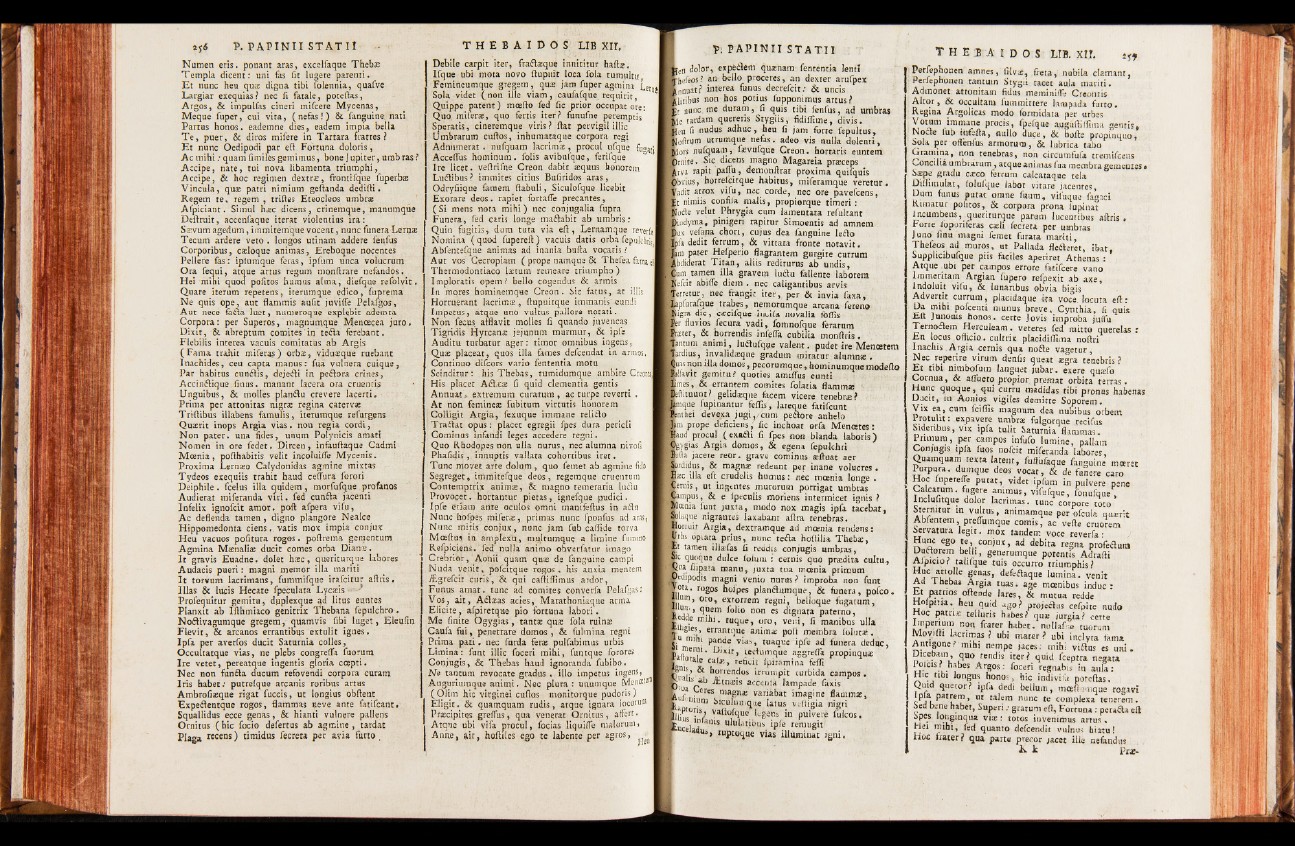 256 P. PAPINII STATII
Numen eris. ponant aras, excelsaque Thebæ
Templa dicent: uni fas sit lugere parenti.
Et nunc heu quæ digna tibi solennia, quasve
Largiar exequias? nec si fatale, potestas,
Argos, & impulsas cineri miscere Mycenas,
Meque super, cui vita, (nefas!) & sanguine nati
Partus honos. eademne dies, eadem impia bella
Te, puer, & diros misere in Tartara fratres?
Et nunc Oedipodi par est Fortuna doloris,
Ac mihi: quam similes gemimus, bone Jupiter, umbras?
Accipe, nate, tui nova libamenta triumphi,
Accipe, & hoc regimen dextræ, frontisque superbæ
Vincula, quæ patri nimium gestanda dedisti.
Regem te, regem, tristes Eteocleos umbræ
Aspiciant. Simul hæc dicens, crinemque, manumque
Destruit, accensaque iterat violentius ira:
Sævum agedum, immitemque vocent, nunc funera Lernæ
Tecum ardere veto. longos utinam addere sensus
Corporibus, cæloque animas, Ereboque nocentes
Pellere fas: ipsumque feras, ipsum unca volucrum
Ora sequi, atque artus regum monstrare nefandos.
Hei mihi quod positos humus alma, diesque resolvit.
Quare iterum repetens, iterumque edico, suprema
Ne quis ope, aut flammis ausit juvisse Pelasgos,
Aut nece facta luet, numeroque explebit adempta
Corpora: per Superos, magnumque Menœcea juro.
Dixit, & abreptum comites in tecta ferebant.
Flebilis interea vaculs comitatus ab Argis
(Fama trahit miseras) orbæ, viduæque ruebant
Inachides, ceu capta manus: sua vulnera cuique,
Par habitus cunctis, dejecti in pectora crines,
Accinctique sinus. manant lacera ora cruentis
Unguibus, & molles planctu crevere lacerti.
Prima per attonitas nigræ regina catervæ
Tristibus illabens famulis, iterumque resurgens
Quærit inops Argia vias. nou regia cordi,
Non pater. una fides, unum Polynicis amati
Nomen in ore sedet. Dircen, infaustaque Cadmi
Mœnia, posthabitis velit incoluisse Mycenis.
Proxima Lernæo Calydonidas agmine mixtas
Tydeos exequiis trahit haud cessura sorori
Deiphile. scelus illa quidem, morsusque profanos
Audierat miseranda viri. sed cuncta jacenti
Infelix ignoscit amor. post aspera visu,
Ac deflenda tamen, digno plangore Nealce
Hippomedonta ciens. vatis mox impia conjux
Heu vacuos positura rogos. postrema gementum
Agmina Mænaliæ ducit comes orba Dianæ.
It gravis Euadne. dolet hæc, queriturque labores
Audacis pueri: magni memor illa mariti
It torvum lacrimans, summisque irascitur astris.
Illas & lucis Hecate speculata Lycæis
Prosequitur gemitu, duplexque ad litus euntes
Planxit ab Isthmiaco genitrix Thebana sepulchro.
Noctivagumque gregem, quamvis sibi luget, Eleusin
Flevit, & arcanos errantibus extulit ignes.
Ipsa per aversos ducit Saturnia colles,
Occultatque vias, ne plebs congressa suorum
Ire vetet, pereatque ingentis gloria cœpti.
Nec non functa ducum refovendi corpora curam
Iris habet: putresque arcanis roribus artus
Ambrosiæque rigat succis, ut longius obstent
Expectentque rogos, flammas neve ante fatiscant.
Squallidus ecce genas, & hianti vulnere pallens
Ornitus (hic socio desertus ab agmine, tardat
Plaga recens) timidus secreta per avia furto
THEBAIDOS LIB XII.
Debile carpit iter, fractæque innititur hastæ.
Isque ubi mota novo stupuit loca sola tumultu,
Femineumque gregem, quæ jam super agmina
Sola videt (non ille viam, causasque requirit,
Quippe patent) mœsto sed sic prior occupat ore:
Quo miseræ, quo fertis iter? funusne peremptis
Speratis, cineremque viris? stat pervigil illic
Umbrarum custos, inhumataque corpora regi
Adnumerat. nusquam lacrimæ, procul usque fugati
Accessus hominum. solis avibusque, ferisque
Ire licet. vestrisne Creon dabit æquus honorem
Luctibus? immites citius Busiridos aras,
Odrysiique famem stabuli, Siculosque licebit
Exorare deos. rapiet fortasse precantes,
(Si mens nota mihi) nec conjugalia supra
Funera, sed caris longe mactabit ab umbris:
Quin fugitis, dum tuta via est, Lernamque
Nomina (quod superest) vacuis datis orba
Absentesque animas ad inania busta vocatis?
Aut vos Cecropiam (prope namque & Thesea fama
Thermodontiaco lætum remeare triumpho)
Imploratis opem? bello cogendus & armis
In mores hominemque Creon. Sic fatus, at illis
Horruerant lacrimæ, stupuitque immanis eundi
Impetus, atque uno vultus pallore notati.
Non secus afflavit molles si quando juvencas
Tigridis Hyrcanæ jejunum murmur, & ipse
Auditu turbatur ager: timor omnibus ingens,
Quæ placeat, quos illa fames descendat in armos.
Continuo discors vario sententia motu
Scinditur: his Thebas, tumidumque ambire
His placet Actææ si quid clementia gentis
Annuat. extremum curarum, ac turpe reverti.
At non femineæ subitum virtutis honorem
Colligit Argia, sexuque immane relicto
Tractat opus: placet egregii spes dura pericli
Cominus infandi leges accedere regni.
Quo Rhodopes non ulla nurus, nec alumna nivosi
Phasidis, innuptis vallata cohortibus iret.
Tunc movet arte dolum, quo semet ab agmine
Segreget, immitesque deos, regemque cruentum
Contemptrix animæ, & magno temeraria luctu
Provocet. hortantur pietas, ignesque pudici.
Ipse etiam ante oculos omni manifestus in actu
Nunc hospes miseræ, primas nunc sponsus ad aras,
Nunc mitis conjux, nunc jam sub casside torva
Mœstus in amplexu, multumque a limine
Respiciens. sed nulla animo obversatur imago
Crebrior, Aonii quam quæ de sanguine campi
Nuda venit, poscitque rogos. his anxia mentem
Ægrescit curis, & qui castissimus ardor,
Funus amat. tunc ad comites conversa Pelasgas:
Vos, ait, Actæas acies, Marathoniaque arma
Elicite, aspiretque pio fortuna labori.
Me sinite Ogygias, tantæ quæ sola ruinæ
Causa fui, penetrare domos, & fulmina regni
Prima pati. nec surda feræ pulsabimus urbis
Limina: sunt illic soceri mihi, suntque sorores
Conjugis, & Thebas haud ignoranda subibo.
Ne tantum revocate gradus. illo impetus ingens,
Auguriumque animi. Nec plura: unumque
(Olim hic virginei custos monitorque pudoris)
Eligit. & quamquam rudis, atque ignara locorum
Præcipites gressus, qua venerat Ornitus, affert.
Atque ubi visa procul, socias liquisse malorum,
Anne, ait, hostiles ego te labente per agros,
Heu
P. PAPINII STATII
Heu dolor, expectem quænam sententia lenti
Theseos? an bello proceres, an dexter aruspex
Annuat? interea funus decrescit: & uncis
Alitibus non hos potius supponimus artus?
Et nunc me duram, si quis tibi sensus, ad umbras
Me tardam quereris Stygiis, fidissime, divis.
Heu si nudus adhuc, heu si jam forte sepultus,
Nostrum utrumque nefas. adeo vis nulla dolenti,
Mors nusquam, sævusque Creon. hortaris euntem
Ornite. Sic dicens magno Magareia præceps
Arva rapit passu, demonstrat proxima quisquis
Obvius, horrescitque habitus, miseramque veretur.
Vadit atrox visu, nec corde, nec ore pavescens,
Et nimiis confisa malis, propiorque timeri:
Nocte velut Phrygia cum lamentata resultant
Dindyma, pinigeri rapitur Simoentis ad amnem
Dux vesana chori, cujus dea sanguine lecto
Ipsa dedit ferrum, & vittata fronte notavit.
Jam pater Hesperio flagrantem gurgite currum
Abdiderat Titan, aliis rediturus ab undis,
Cum tamen illa gravem luctu fallente laborem
Nescit abisse diem. nec caligantibus arvis
Terretur, nec frangit iter, per & invia saxa,
Lapsurasque trabes, nemorumque arcana sereno
Nigra die, cæcisque incisa novalia fossis
Per fluvios secura vadi, somnosque ferarum
Præter, & horrendis infessa cubilia monstris.
Tantum animi, luctusque valent. pudet ire Menœtem
Tardius, invalidæque gradum miratur alumnæ.
Quas non illa domos, pecorumque, hominumque modesto
Pulsavit gemitu? quoties amissus eunti
Limes, & errantem comites solatia flammæ
Destituunt? gelidæque facem vicere tenebræ?
Jamque supinantur fessis, lateque fatiscunt
Penthei devexa jugi, cum pectore anhelo
Jam prope deficiens, sic inchoat orsa Menœtes:
Haud procul (exacti si spes non blanda laboris)
Ogygias Argia domos, & egena sepulchri
Busta jacere reor. grave cominus æstuat aer
Sordidus, & magnæ redeunt per inane volucres.
Hæc illa est crudelis humus: nec mœnia longe.
Cernis, ut ingentes murorum porrigat umbras
Campus, & e speculis moriens intermicet ignis?
Mœnia sunt juxta, modo nox magis ipsa tacebat,
Solaque nigrantes laxabant astra tenebras.
Horruit Argia, dextramque ad mœnia tendens:
Urbs optata prius, nunc tecta hostilia Thebæ,
Et tamen illæsas si reddis conjugis umbras,
Sic quoque dulce solum: cernis quo prædita cultu,
Qua stipata manu, juxta tua mœnia primum
Oedipodis magni venio nurus? improba non sunt
Vota. rogos hospes planctumque, & funera, posco.
Illum, oro, extorrem regni, belloque fugatum,
Illum, quem solio non es dignata paterno,
Redde mihi. tuque, oro, veni, si manibus ulla
Effigies, errantque animæ post membra solutæ.
Tu mihi pande vias, tuaque ipse ad funera deduc,
Si merui. Dixit, tectumque aggressa propinquæ
Pastorale casæ, reficit spiramina fessi
Ignis, & horrendos irrumpit turbida campos.
Qualis ab Ætnæis accensa lampade saxis
Orba Ceres magnæ variabat imagine flammæ,
Ausonium Siculumque latus vestigia nigri
Raptoris, vastosque legens in pulvere sulcos.
Illius insanis ululatibus ipse remugit
Enceladus, ruptoque vias illuminat igni.
THEBAIDOS LIB. XII. 257
Persephonen amnes, silvæ, freta, nubila clamant,
Persephonen tantum Stygii tacet aula mariti.
Admonet attonitam fidus meminisse Creontis
Altor, & occultam summittere lampada furto.
Regina Argolicas modo formidata per urbes
Votum immane procis, spesque augustissima gentis,
Nocte sub infesta, nullo duce, & hoste propinquo,
Sola per offensus armorum, & lubrica tabo
Gramina, non tenebras, non circumfusa tremiscens
Concilia umbrarum, atque animas sua membra gementes.
Sæpe gradu cæco ferrum calcataque tela
Dissimulat, solusque labor vitare jacentes,
Dum funus putat omne suum, visuque sagaci
Rimatur positos, & corpora prona supinat
Incumbens, queriturque parum lucentibus astris.
Forte soporiferas cæli secreta per umbras
Juno sinu magni semet furata mariti,
Theseos ad muros, ut Pallada flecteret, ibat,
Supplicibusque piis faciles aperiret Athenas:
Atque ubi per campos errore fatiscere vano
Immeritam Argian supero respexit ab axe,
Indoluit visu, & lunaribus obvia bigis
Advertit currum, placidaque ita voce locuta est:
Da mihi poscenti munus breve, Cynthia, si quis
Est Junonis honos. certe Jovis improba jussu
Ternoctem Herculeam. veteres sed mitto querelas:
En locus officio. cultrix placidissima nostri
Inachis Argia cernis qua nocte vagetur,
Nec reperire virum densis queat ægra tenebris?
Et tibi nimbosum languet jubar. exere quæso
Cornua, & assueto propior premat orbita terras.
Hunc quoque, qui curru madidas tibi pronus habenas
Ducit, in Aonios vigiles demitte Soporem.
Vix ea, cum scissis magnum dea nubibus orbem
Protulit: expavere umbræ fulgorque recisus
Sideribus, vix ipsa tulit Saturnia flammas.
Primum, per campos infuso lumine, pallam
Conjugis ipsa suos noscit miseranda labores,
Quamquam texta latent, suffusaque sanguine mœret
Purpura. dumque deos vocat, & de funere caro
Hoc superesse putat, videt ipsum in pulvere pene
Calcatum. fugere animus, visusque, sonusque,
Inclusitque dolor lacrimas. tunc corpore toto
Sternitur in vultus, animamque per oscula quærit
Absentem, pressumque comis, ac veste cruorem
Servatura legit. mox tandem voce reversa:
Hunc ego te, conjux, ad debita regna profectum
Ductorem belli, generumque potentis Adrasti
Aspicio? talisque tuis occurro triumphis?
Huc attolle genas, defectaque lumina. venit
Ad Thebas Argia tuas. age mœnibus induc:
Et patrios ostende lares, & mutua redde
Hospitia. heu quid ago? projectus cespite nudo
Hoc patriæ telluris habes? quæ jurgia? certe
Imperium non frater habet. nullasne tuorum
Movisti lacrimas? ubi mater? ubi inclyta fama
Antigone? mihi nempe jaces: mihi victus es uni
Dicebam, quo tendis iter? quid sceptra negata
Poscis? habes Argos: soceri regnabis in aula:
Hic tibi longus honos, hic indivisa potestas.
Quid queror? ipsa dedi bellum, mœstumque rogavi
Ipsa patrem, ut talem nunc te complexa tenerem.
Sed bene habet, Superi: gratum est, Fortuna: peracta est
Spes longinqua viæ: totos invenimus artus.
Hei mihi, sed quanto descendit vulnus hiatu!
Hoc frater? qua parte precor jacet ille nefandus
K k Præ-